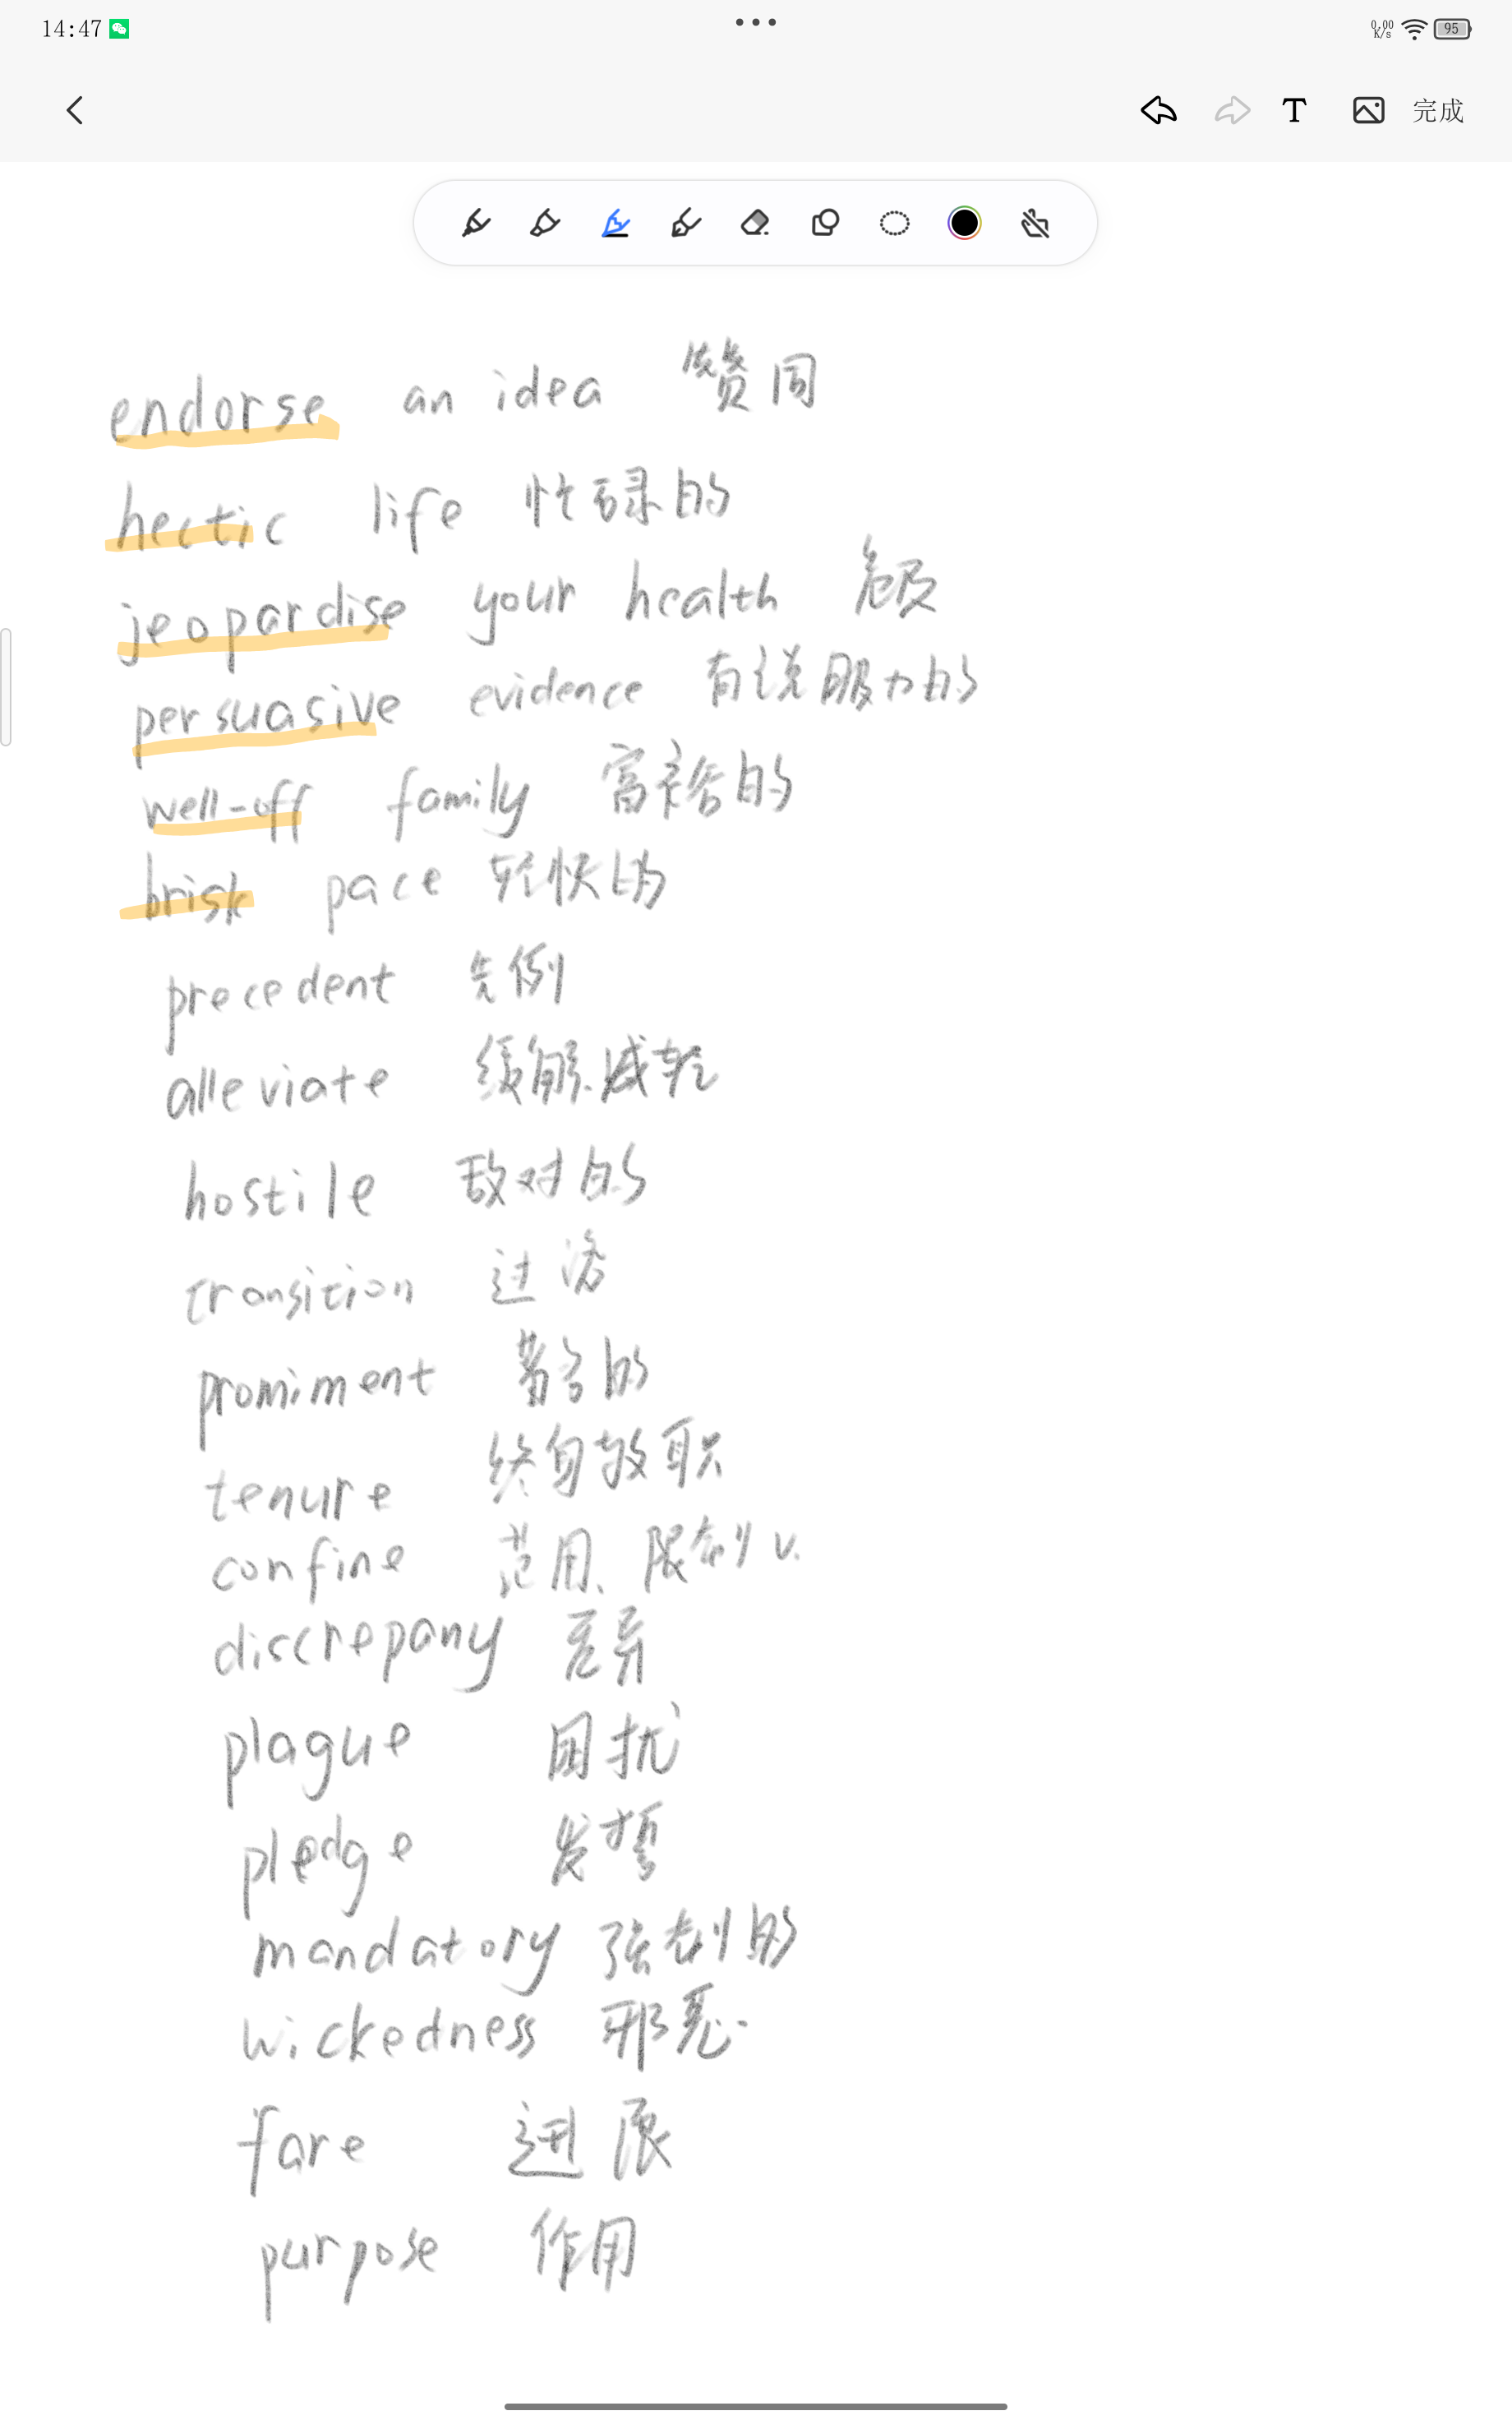 14:47
0.00 K/s 95
T 完成
endorse an idea 赞同
hectic life 忙碌的
jeopardise your health 危及
persuasive evidence 有说服力的
well-off family 富裕的
brisk pace 轻快的
precedent 先例
alleviate 缓解、减轻
hostile 敌对的
transition 过渡
promiment 著名的
tenure 终身教职
confine 范围、限制 v.
discrepany 差异
plague 困扰
pledge 发誓
mandatory 强制的
wickedness 邪恶
fare 进展
purpose 作用